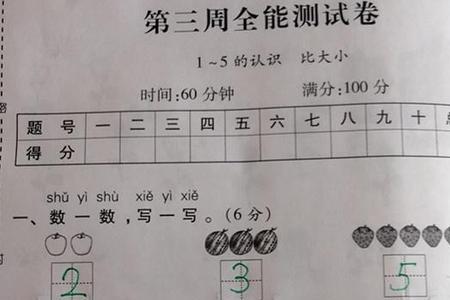 第三周全能测试卷
1~5的认识 比大小
时间:60分钟 满分:100分
题号 一 二 三 四 五 六 七 八 九 十
得分
shǔ yì shù xiě yì xiě
一、数一数,写一写。(6分)
2 3 5